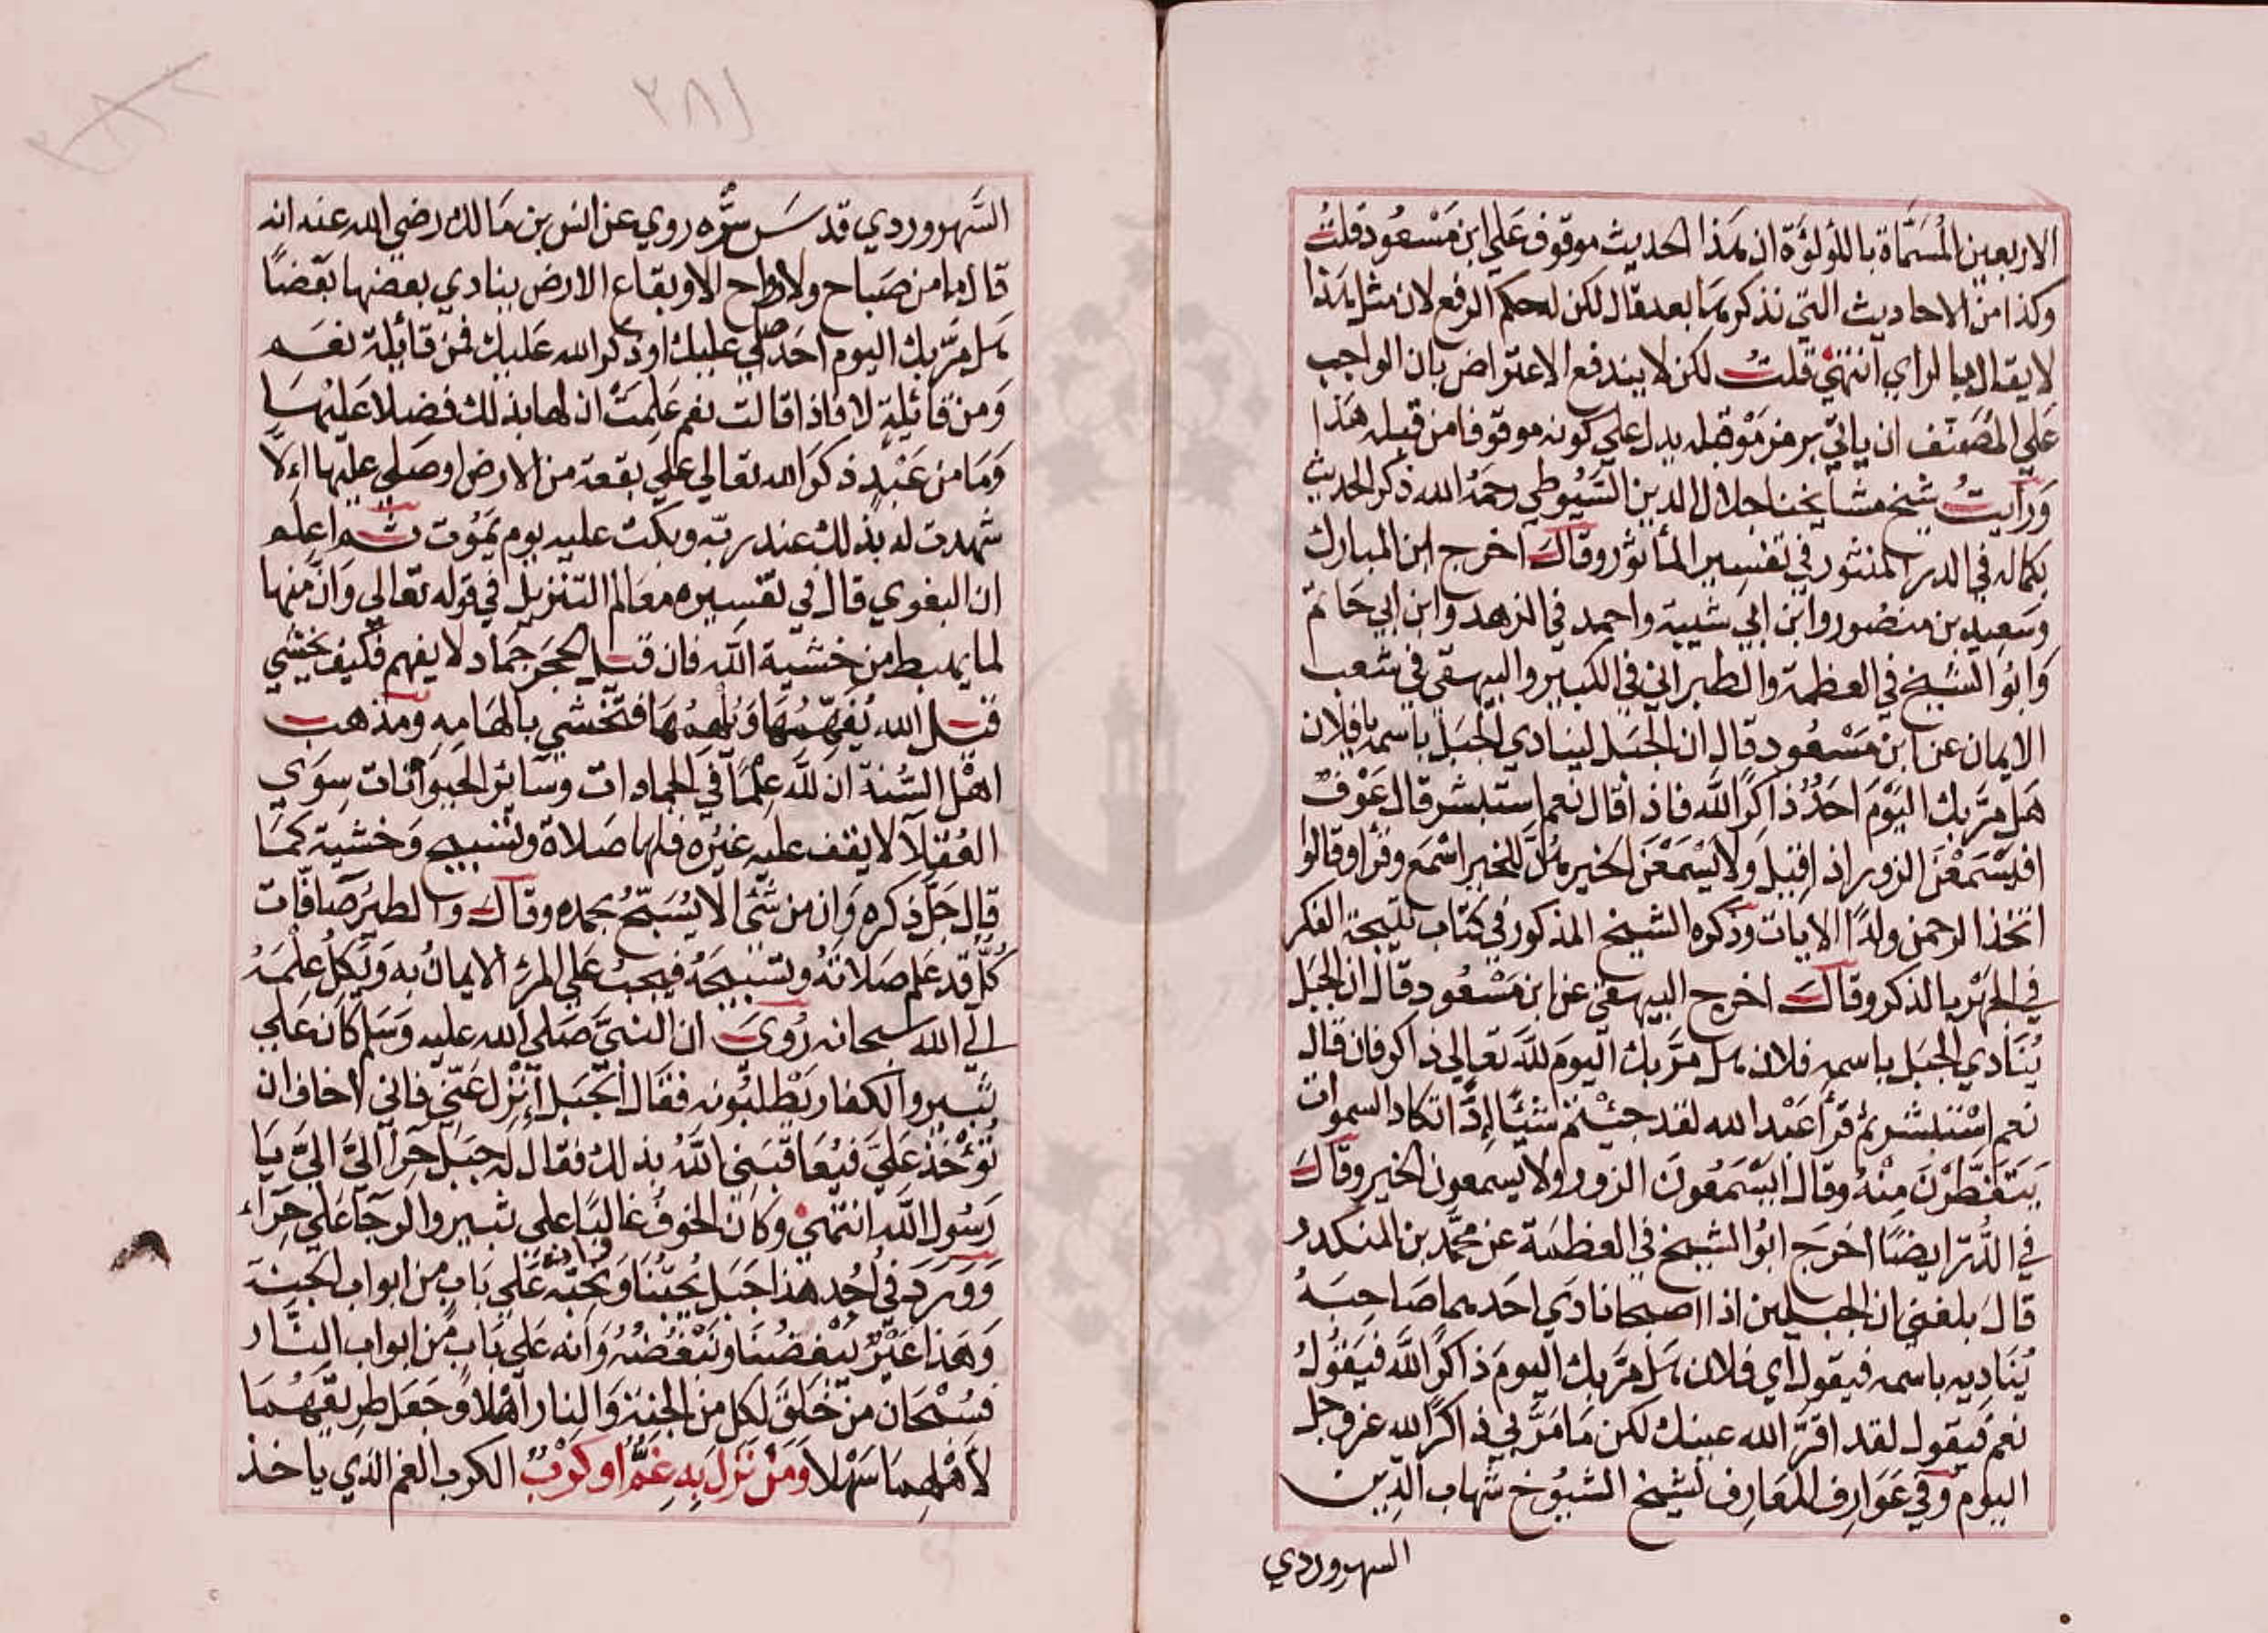 الاربعين المُسَمَّاة باللؤلؤة ان هذا الحديث موقوف علي ابن مَسْعُود قلتُ
وكذا من الاحاديث التي نذكرها بعد قال لكن له حكم الرفع لان مثل هذا
لا يقال بالراي انتهي قلتُ لكن لا يندفع الاعتراض بان الواجب
علي المُصَنّف ان ياتي برمز مَوْ قبله يدل علي كونه موقوفا من قبله هذا
وَرأيتُ شيخ مشايخنا جلال الدين السُّيُوطي رحمَهُ الله ذكر الحديث
بكماله في الدر المنثور في تفسير المأثور وقال اخرج ابن المبارك
وسَعِيد بن منصُور وابن ابي شيبة واحمد في الزهد وابن ابي حَاتم
وَابُو الشيخ في العظمة والطبراني في الكبير والبيهقي في شعب
الايمان عن ابن مَسْعُود قال ان الجَبَل لينَادي الجَبَل باسمه يا فلان
هَل مرَّ بك اليَوْمَ احَدٌ ذاكرًا لله فاذا قال نعم استبشر قال عَوْفٌ
افيَسْمَعْنَ الزور اذا قيل وَلا يَسْمَعْنَ الخير هُنَّ للخير اسْمَع وقرا وقالوا
اتخذ الرحمن ولدًا الايات وذكره الشيخ المذكور في كتاب نتيجة الفكر
في الجَهْر بالذكر وقال اخرج البيهقي عن ابن مَسْعُود قال ان الجبَل
يُنَادي الجبَل باسمه فلان هل مرَّ بك اليومَ للهِ تعالي ذاكر فان قال
نعم اسْتبشر ثم قرأ عَبْد الله لقد جئْتم شيْئًا إدًّا تكاد السموات
يَتَفَطّرْنَ مِنْهُ وقال ايَسْمَعُونَ الزور ولا يسمعون الخير وقال
في الدُّرّ ايضًا اخرَج ابُو الشيخ في العظمَة عن محمَّد بن المنكدر
قالَ بلغني ان الجبلين اذا اصبحا نادَي احَدهما صَاحبَهُ
يُنَادِيه باسمه فيقول اي فلان هَل مَرَّ بك اليومَ ذاكرًا لله فيَقولُ
نعم فيقول لقد اقرَّ الله عينك لكن مَا مَرَّ بي ذاكرًا لله عز وجل
اليوم وَفي عَوَارِف المَعَارِف لشيخ الشيُوخ شهاب الدّين
السهروردي
٣٨١
السَّهروردي قدسَ سِرّه روي عن انس بن مَالك رضي الله عنه انه
قال ما من صَبَاح ولا رواح الا وبقاع الارض ينادي بعضها بَعضًا
هل مرَّ بك اليوم احَد صلي عليك او ذكر الله عَليك فمن قائلة نعَم
وَمن قائلةٍ لا فاذا قالت نعم عَلِمَتْ ان لها بذلك فضلا عَليْهَا
وَمَا من عَبْدٍ ذكرَ الله تعالي علي بقعة من الارض او صَلي عليها الا
شهدت له بذلك عند ربّه وبكت عليه يوم يمَوُت ثم اعلم
ان البغوي قال في تفسِيره معَالم التنزيل في قوله تعَالي وَان منها
لما يهبط من خشية الله فان قيل الحجَر جَماد لا يفهم فكيف يخشي
قيل الله يُفَهّمُهَا وَيُلهمُهَا فتخشي بالهَامِه ومَذهب
اهْل السُّنة ان للهِ عِلمًا في الجمادات وسَائر الحيوَانات سِوَي
العُقلآ لا يقف عليه غيْرُه فلها صَلاة وتسْبيح وَخشية كمَا
قال جَلّ ذكره وَان من شَئ الا يُسَبّحُ بحمده وقال والطيْر صَافّات
كُلٌّ قد عَلم صَلاتَهُ وتسْبيحَهُ فيجبُ عَلي المرْء الايمانُ به وَيَكِلُ عِلْمَهُ
الي الله سبحانه رُوِيَ ان النبيَّ صَلي الله عليه وَسَلم كَانَ عَلي
ثبير والكفار يَطْلبُونه فقال الجَبَل اِنْزِل عَنّي فاني اخاف ان
تُؤخَذَ عَليَّ فيُعَاقبَني اللهُ بذلك فقال له جبَل حرآ اليَّ اليَّ يَا
رَسُول الله انتهي وَكانَ الخوفُ غالبًا علي ثبير والرجَآ عَلي حِرَآء
وَوَرَدَ في اُحُد هذا جَبَل يُحِبُّنا وَنُحِبّه وانه عَلي بَابٍ من ابواب الجنة
وَهَذا عَيْرٌ يَبْغضُنَا ونَبْغُضُهُ وَانه عَلي بَابٍ مِن ابواب النَّار
فسُبْحَان منْ خَلقَ لكلٍ من الجنة وَالنار اَهْلا وَجَعَل طريقهُمَا
لأهْلهمَا سَهْلا وَمَنْ نَزَلَ بِه غَمٌّ اَو كَرْبٌ الكرب الغم الذي ياخذ